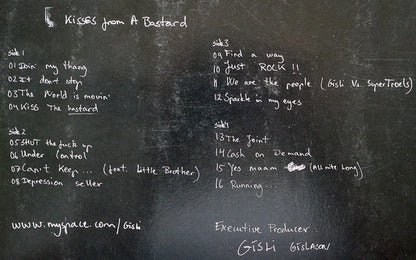 Kisses from A Bastard
side 1
01 Doin' my thang
02 It don't stop
03 The World is movin'
04 KISS THE bastard
side 2
05 SHUT the fuck up
06 Under Control
07 Can't Keep... (feat. Little Brother)
08 Depression seller
www.myspace.com/Gisli
side 3
09 Find a way
10 Just ROCK!!
11 We are the people (Gisli Vs. SuperTroels)
12 Sparkle in my eyes
side 4
13 The Joint
14 Cash on Demand
15 Yes maam (All nite long)
16 Running...
Executive Producer:
GiSLi GiSLASON